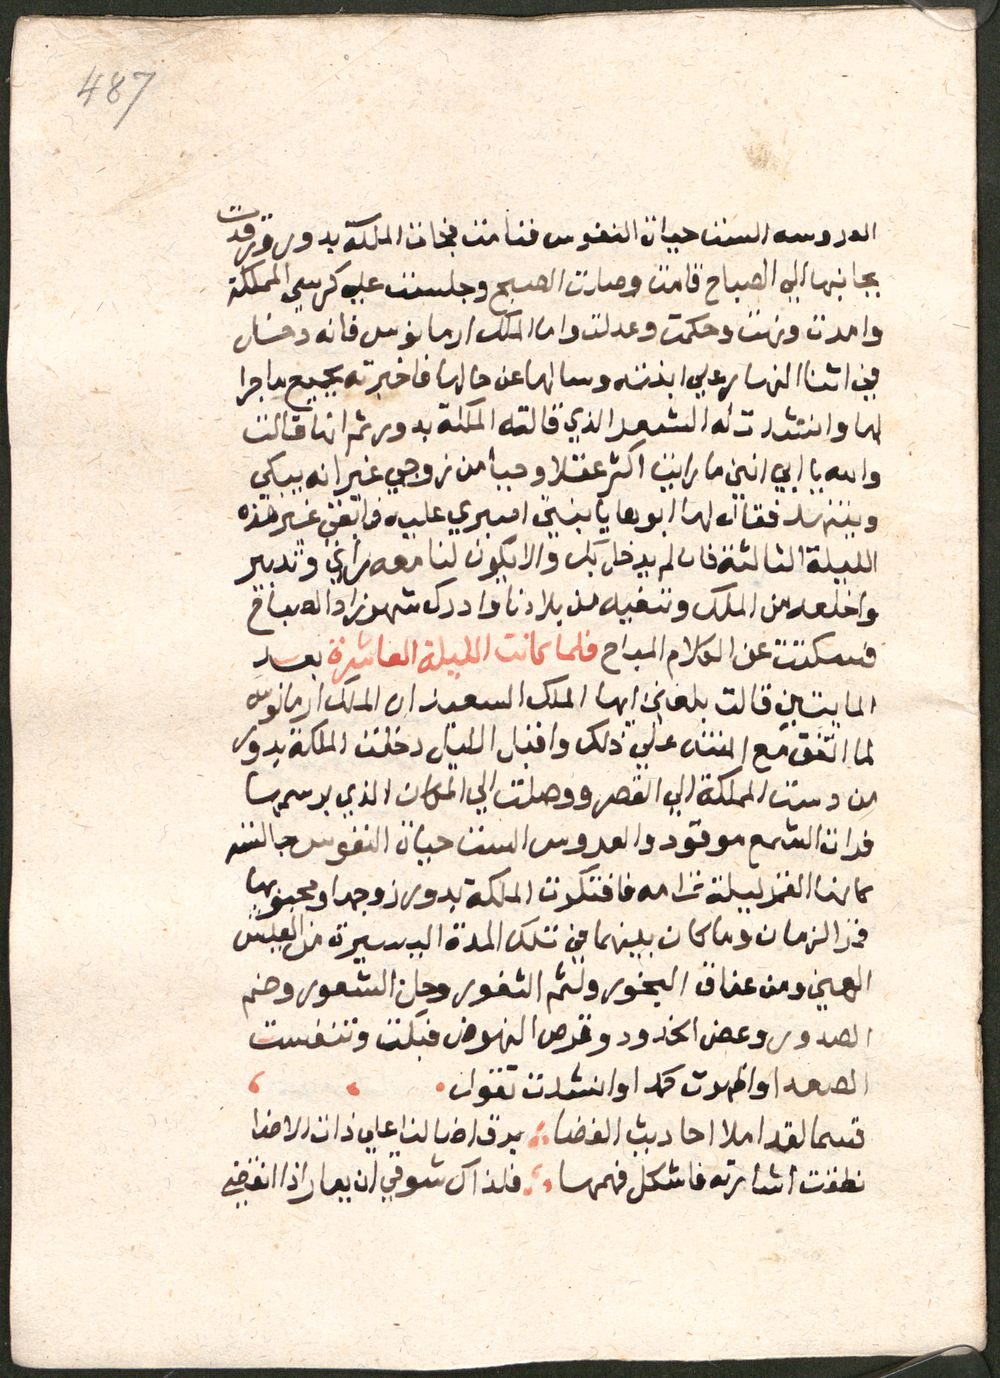 487
العروسه الست حياة النفوس فنامت فجات الملكة بدور ورقدت
بجانبها الي الصباح قامت وصارت الصبح وجلست علي كرسي المملكة
وامرت ونهت وحكمت وعدلت واما الملك ارمانوس فانه دخل
في اثنا النهار علي ابنته وسالها عن حالها فاخبرته بجميع ما جرا
لها وانشدت له الشعر الذي قالته الملكة بدور ثم انها قالت
والله يا ابي انني ما رايت اكثر عقلا وحيا من زوجي غير انه يبكي
ويتنهد فقال لها ابوها يا بنتي اصبري عليه فما بقي غير هذه
الليلة الثالثة فان لم يدخل بك والا يكون لنا معه رأي وتدبير
واخلعه من الملك وننفيه من بلادنا وادرك شهرزاد الصباح
فسكتت عن الكلام المباح فلما كانت الليلة العاشرة بعد
المايتين قالت بلغني ايها الملك السعيد ان الملك ارمانوس
لما اتفق مع ابنته علي ذلك واقبل الليل دخلت الملكة بدور
من دست المملكة الي القصر ووصلت الي المكان الذي برسمها
فرات الشمع موقود والعروس الست حياة النفوس جالسه
كانها القمر ليلة تمامه فافتكرت الملكة بدور زوجها ومحبوبها
قمر الزمان وما كان بينهما في تلك المدة اليسيرة من العيش
الهني ومن عناق النحور ولثم الثغور وحل الشعور وضم
الصدور وعض الخدود وقرص النهود فبكت وتنفست
الصعدا واظهرت كمدا وانشدت تقول
قسما لقد املا احاديث الفضا برق اضا لنا علي ذات الاضا
نطقت اشارته فاشكل فهمها فلذاك شوقي ان يعار اذا انقضي